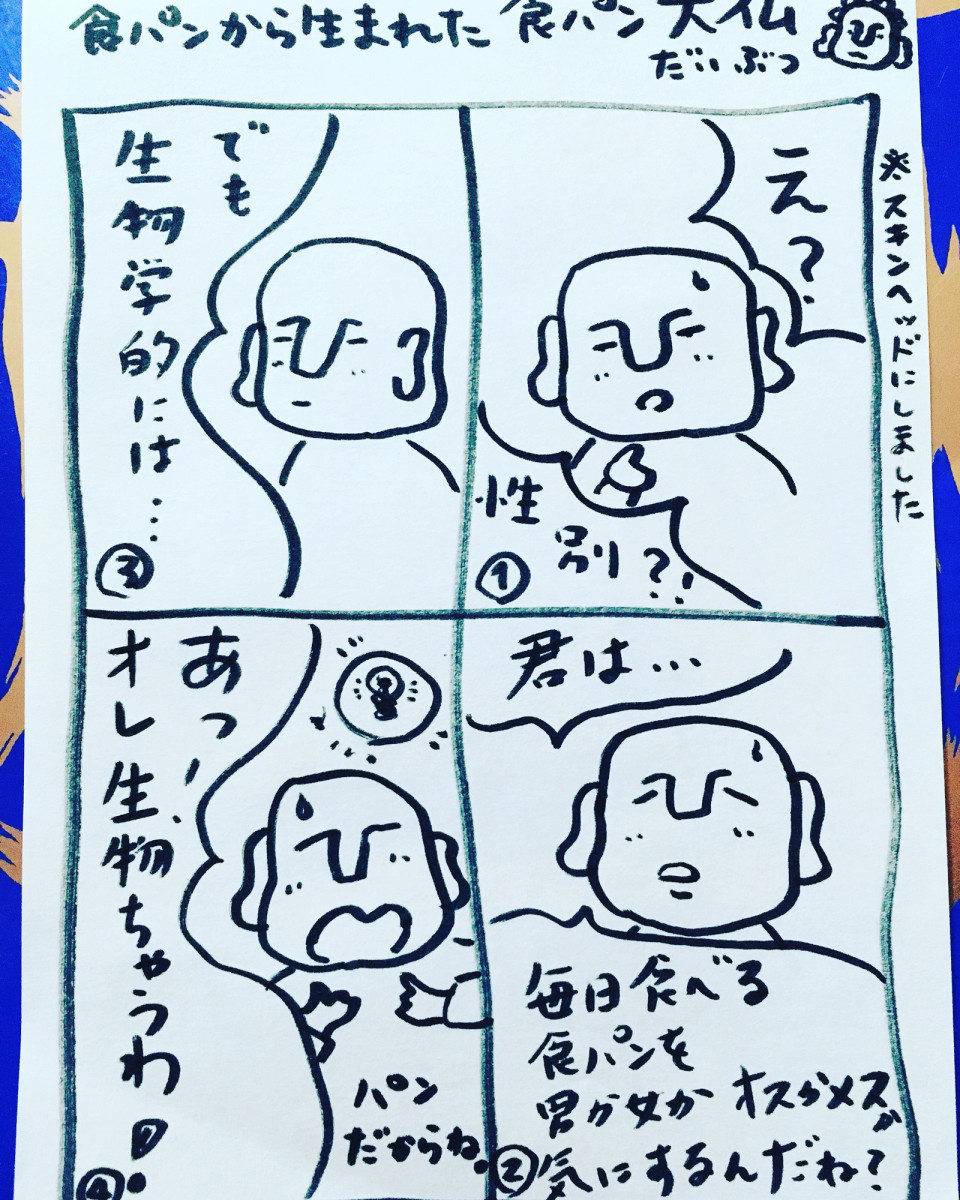 食パンから生まれた食パン大仏
だいぶつ
※スキンヘッドにしました
え?
性
別?
①
君は…
毎日食べる
食パンを
男か女か オスかメスか
気にするんだね?
②
でも
生物学的には…
③
あっ!
オレ生物ちゃうわ!
パン
だからね。
④